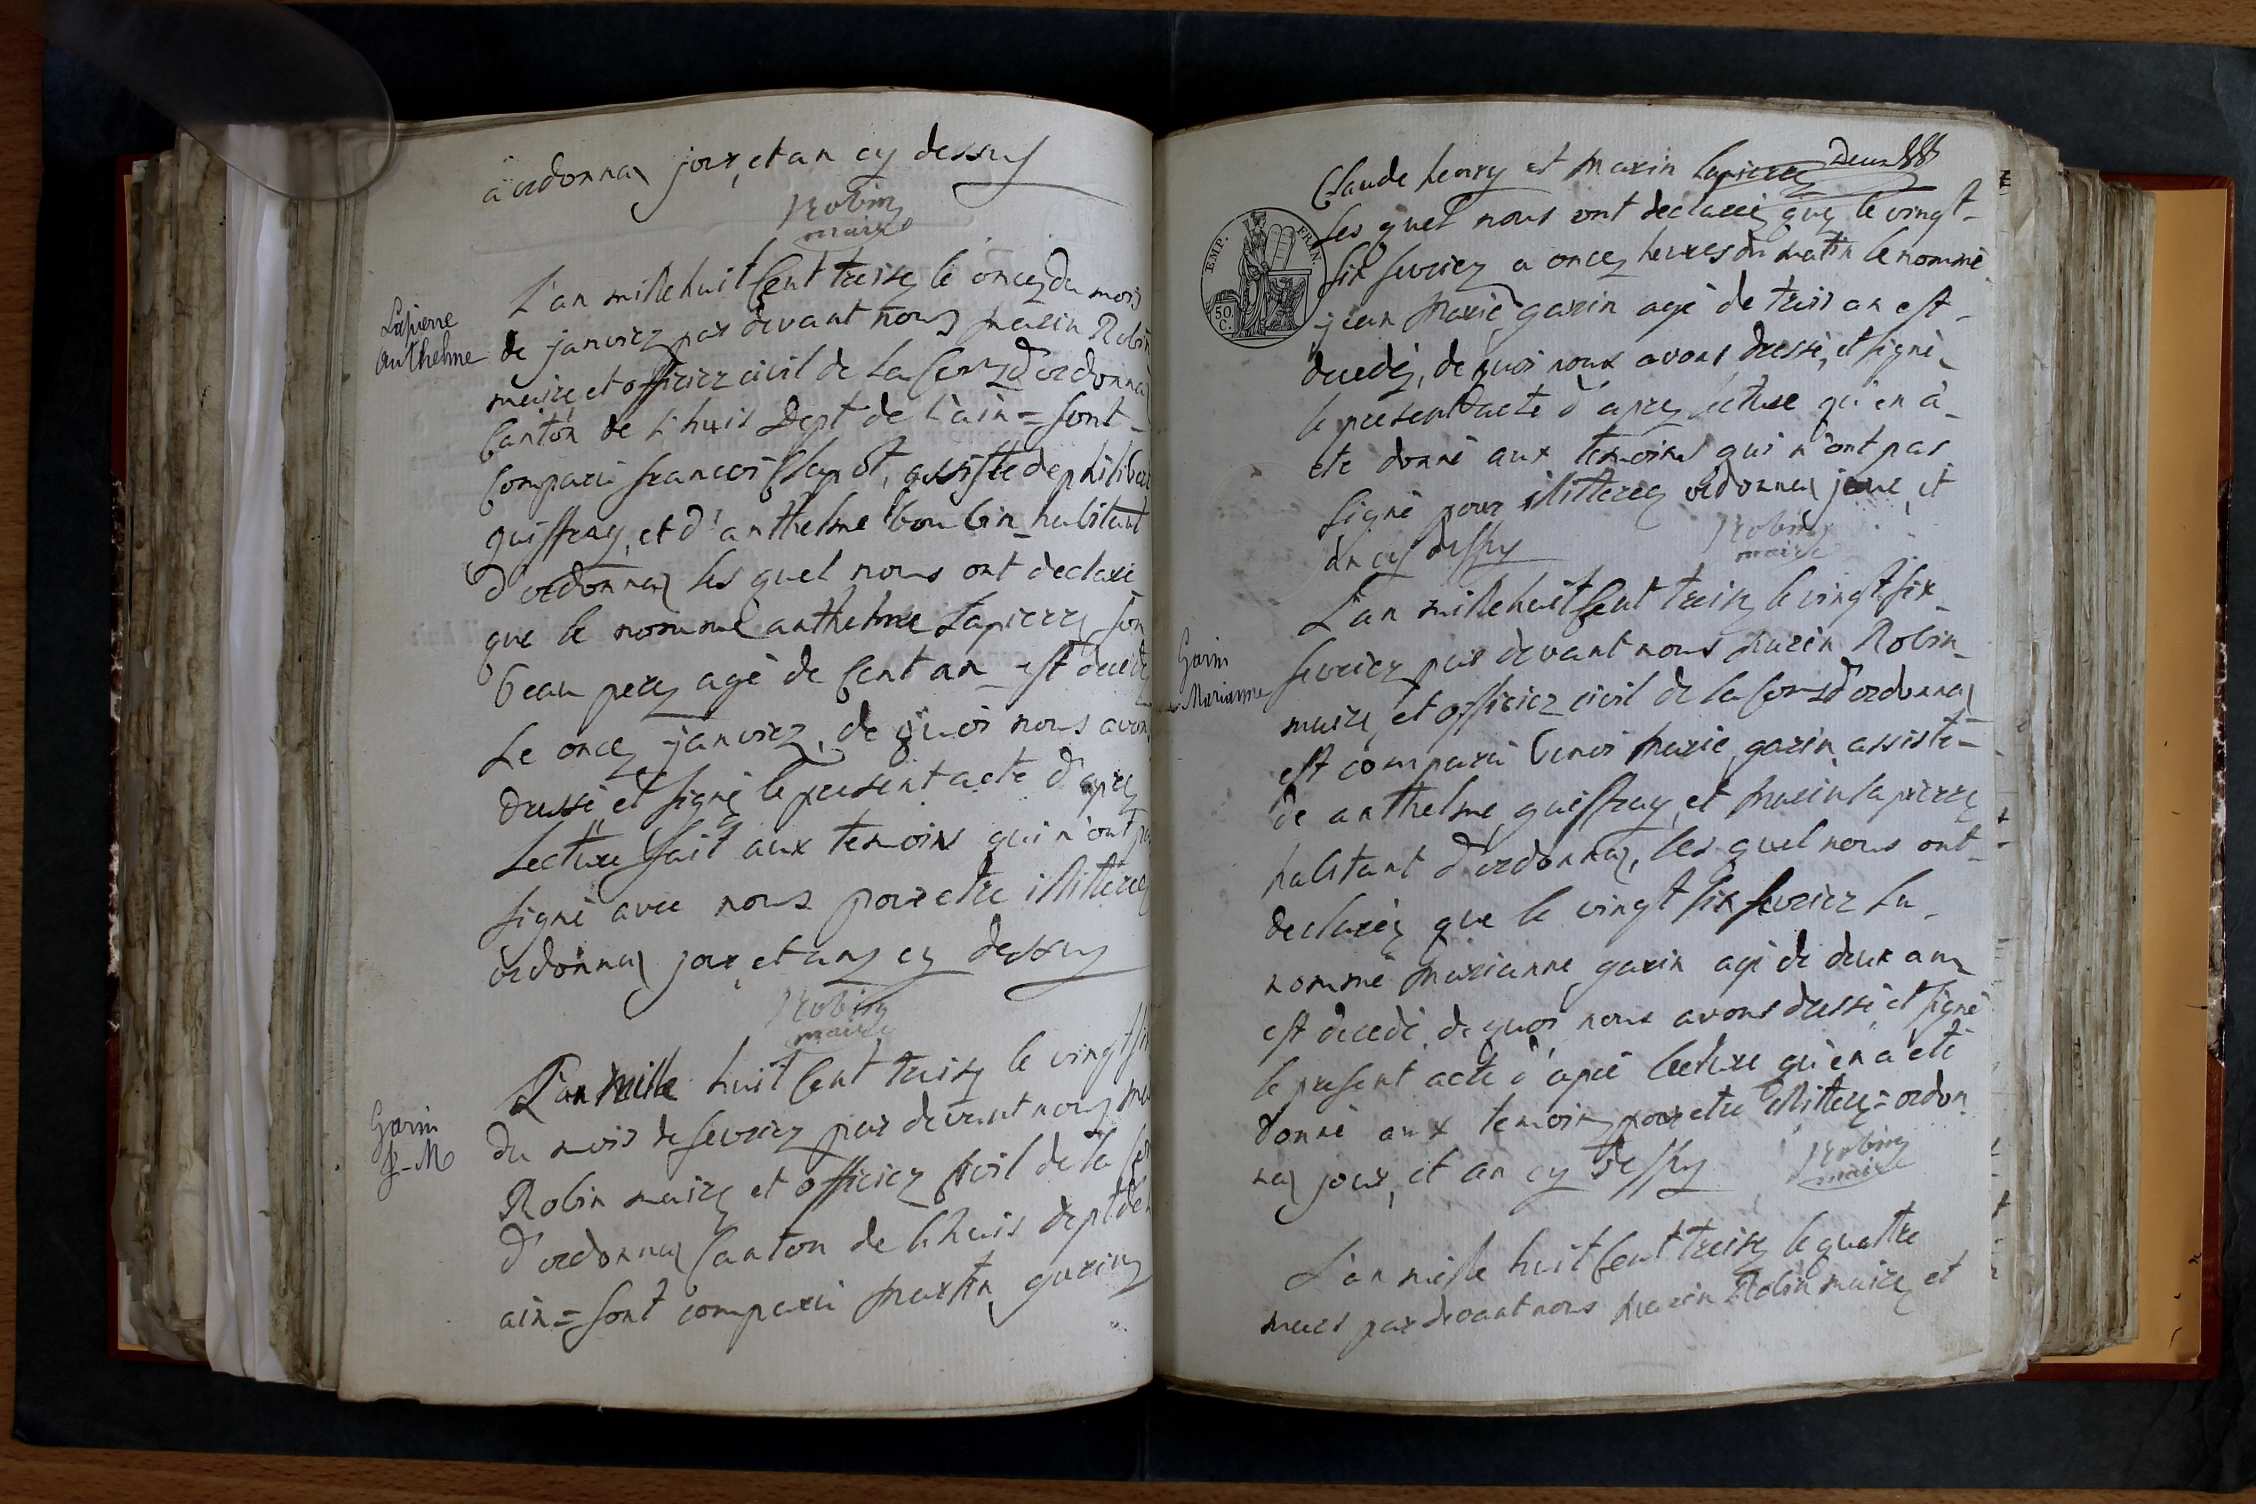 à ordonnaz jour, et an cy dessus
Robin
maire
Lapierre
Anthelme
L'an mille huit Cent treize le onze du mois
de janvier par devant nous marin Robin
maire et officier civil de la Com.ne d'ordonnaz
Canton de L'huis Dept de L'ain = sont
Comparu francoi Clapot, assisté de philibert
guiffray, et d'anthelme boubin habitant
d'ordonnaz les quel nous ont declaré
que le nommé anthelme Lapierre son
beau pere agé de Cent an est decedé
Le once janvier, de quoi nous avons
dressé et signé le present acte d'apres
Lecture fait aux temoins qui n'ont pas
signé avec nous pour etre illitteré
ordonnaz jour, et an cy dessus
Robin
maire
Garin
J-M
L'an mille huit Cent treize le vingt six
du mois de fevrier par devant nous
Robin maire et officier civil de la
d'ordonnaz Canton de Lhuis dept de
ain = sont comparu martin garin
Claude henry et marin Lapierre
Les quel nous ont declaré que le vingt
six fevrier a once heures du matin le nommé
jean marie garin agé de trois an est
decedé, de quoi nous avons dressé, et signé
le present acte d'apres lecture qu'en a
ete donné aux temoins qui n'ont pas
signé pour illitteré ordonnaz jour, et
an cy dessus
Robin
maire
EMP. FRAN.
50.
C.
Garin
Marianne
L'an mille huit Cent treize le vingt six
fevrier par devant nous marin Robin
maire, et officier civil de la Com.ne d'ordonnaz
est comparu benoi marie garin assisté
de anthelme guiffray, et marin lapierre
habitant d'ordonnaz, les quel nous ont
declaré que le vingt six fevrier La
nommé marianne garin agé de deux an
est decedé, de quoi nous avons dressé et signé
le present acte d'apré lecture qu'en a eté
donné aux temoins pour etre illitteré = ordon
naz jour, et an cy dessus
Robin
maire
L'an mille huit Cent treize le quattre
mars par devant nous marin Robin maire, et